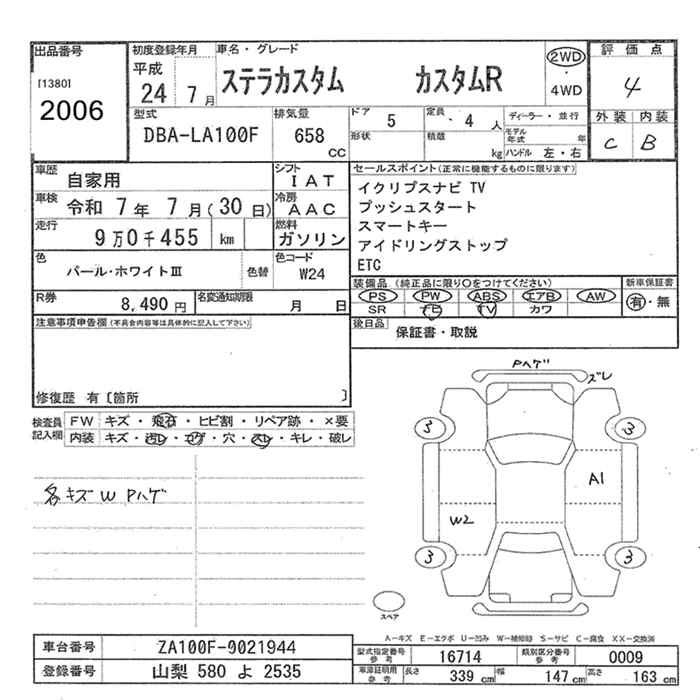 出品番号
[1380]
2006
初度登録年月
平成
24 7月
車名・グレード
ステラカスタム カスタムR
2WD
・
4WD
評価点
4
外装 内装
C B
型式
DBA-LA100F
排気量
658
CC
ドア 5
定員 ・4人
形状
積載 kg
ディーラー・並行
モデル年式 年
ハンドル 左・右
車歴
自家用
シフト
IAT
車検
令和 7年 7月(30日)
冷房
AAC
走行
9万0千455 km
燃料
ガソリン
色
パール・ホワイトⅢ
色替
色コード
W24
R券
8,490円
名変通知期限
月 日
セールスポイント(正常に機能するものに限ります)
イクリプスナビ TV
プッシュスタート
スマートキー
アイドリングストップ
ETC
装備品(純正品に限り○をつけてください)
PS PW ABS エアB AW
SR ナビ TV カワ
新車保証書
有・無
後日品
保証書・取説
注意事項申告欄(不具合内容等は具体的に記入して下さい)
修復歴 有〔箇所 〕
検査員記入欄
FW キズ・飛石・ヒビ割・リペア跡・×要
内装 キズ・汚レ・コゲ・穴・スレ・キレ・破レ
各キズW Pハゲ
Pハゲ
ズレ
3 3
A1
W2
3 3
スペア
A-キズ E-エクボ U-凹み W-補修跡 S-サビ C-腐食 XX-交換済
車台番号 ZA100F-0021944
登録番号 山梨 580 よ 2535
型式指定番号参考 16714
類別区分番号参考 0009
車庫証明用参考 長さ 339cm 幅 147cm 高さ 163cm